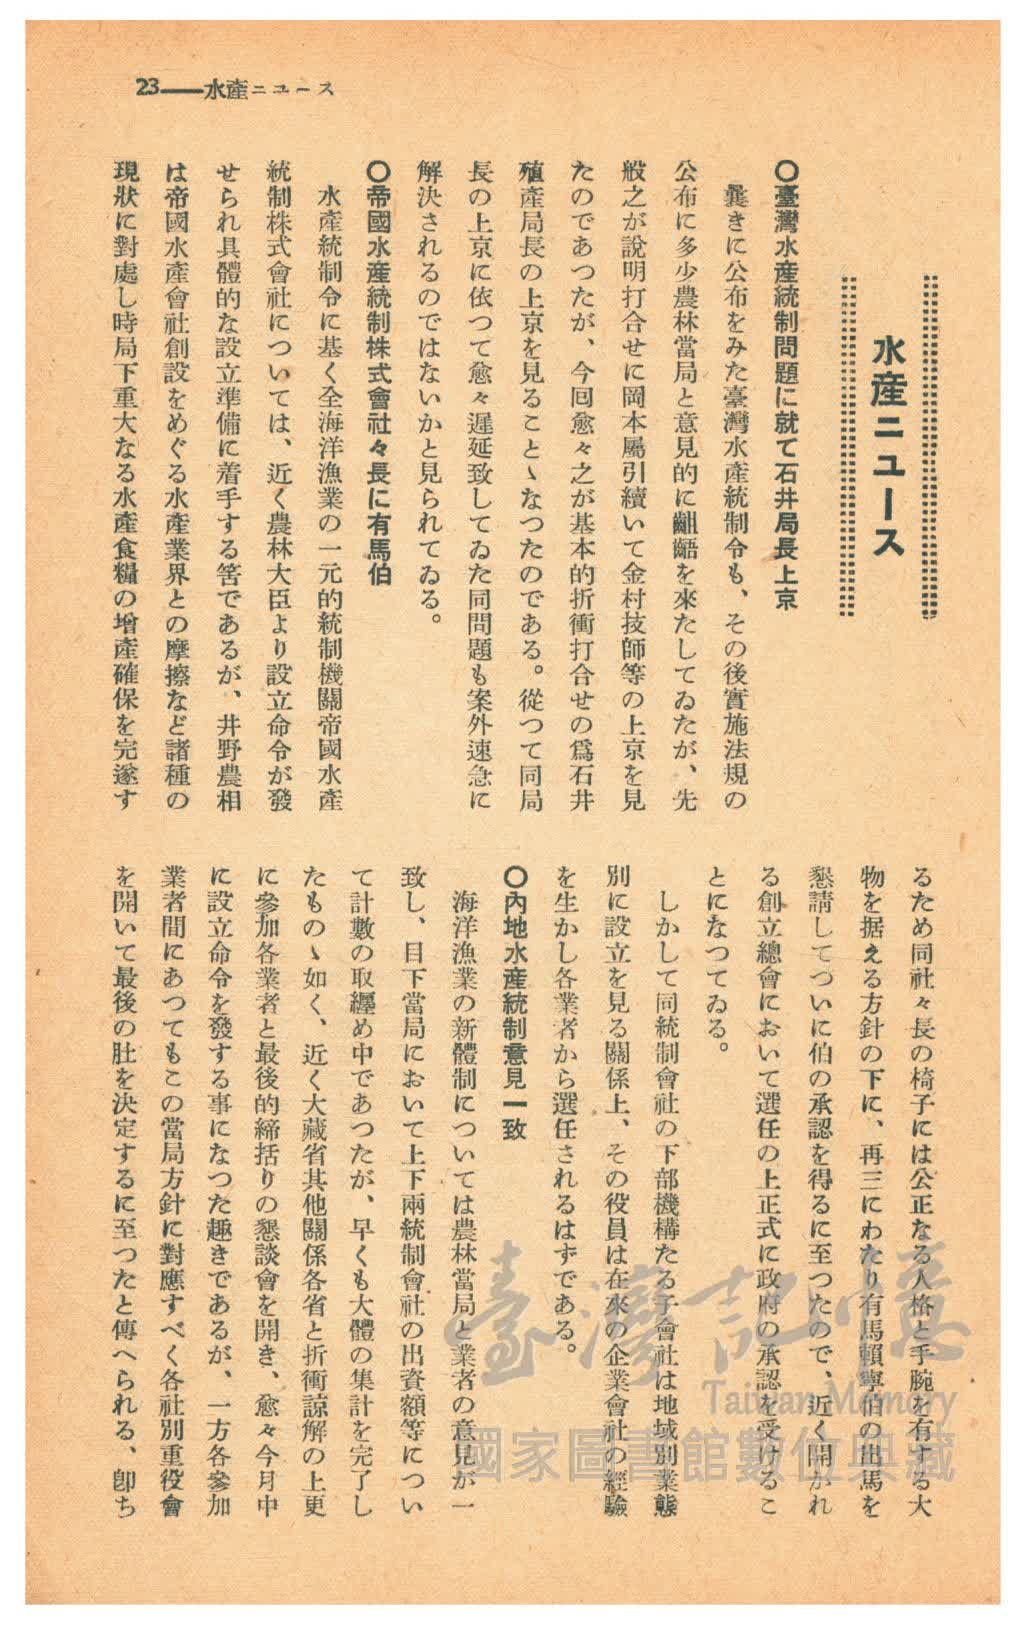 23——水產ニュース
水産ニュース
〇臺灣水産統制問題に就て石井局長上京
曩きに公布をみた臺灣水産統制令も、その後實施法規の
公布に多少農林當局と意見的に齟齬を來たしてゐたが、先
般之が說明打合せに岡本屬引續いて金村技師等の上京を見
たのであつたが、今回愈々之が基本的折衝打合せの爲石井
殖產局長の上京を見ることゝなつたのである。從つて同局
長の上京に依つて愈々遲延致してゐた同問題も案外速急に
解決されるのではないかと見られてゐる。
〇帝國水産統制株式會社々長に有馬伯
水產統制令に基く全海洋漁業の一元的統制機關帝國水產
統制株式會社については、近く農林大臣より設立命令が發
せられ具體的な設立準備に着手する筈であるが、井野農相
は帝國水產會社創設をめぐる水產業界との摩擦など諸種の
現狀に對處し時局下重大なる水產食糧の增產確保を完遂す
るため同社々長の椅子には公正なる人格と手腕を有する大
物を据える方針の下に、再三にわたり有馬賴寧伯の出馬を
懇請してついに伯の承認を得るに至つたので、近く開かれ
る創立總會において選任の上正式に政府の承認を受けるこ
とになつてゐる。
しかして同統制會社の下部機構たる子會社は地域別業態
別に設立を見る關係上、その役員は在來の企業會社の經驗
を生かし各業者から選任されるはずである。
〇內地水産統制意見一致
海洋漁業の新體制については農林當局と業者の意見が一
致し、目下當局において上下兩統制會社の出資額等につい
て計數の取纒め中であつたが、早くも大體の集計を完了し
たものゝ如く、近く大藏省其他關係各省と折衝諒解の上更
に參加各業者と最後的締括りの懇談會を開き、愈々今月中
に設立命令を發する事になつた趣きであるが、一方各參加
業者間にあつてもこの當局方針に對應すべく各社別重役會
を開いて最後の肚を決定するに至つたと傳へられる、卽ち
臺灣記憶
Taiwan Memory
國家圖書館數位典藏